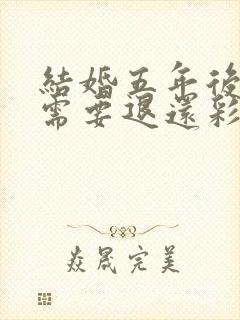 結婚五年後
需要退還彩
焱晟完美